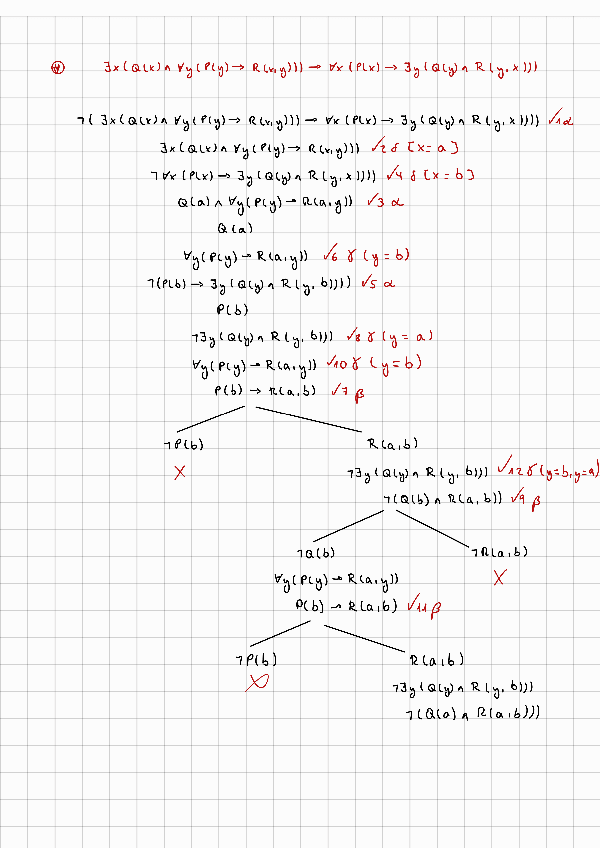 ④ ∃x(Q(x) ∧ ∀y(P(y) → R(x,y))) → ∀x(P(x) → ∃y(Q(y) ∧ R(y,x)))
¬(∃x(Q(x) ∧ ∀y(P(y) → R(x,y))) → ∀x(P(x) → ∃y(Q(y) ∧ R(y,x)))) ✓1α
∃x(Q(x) ∧ ∀y(P(y) → R(x,y))) ✓2δ [x=a]
¬∀x(P(x) → ∃y(Q(y) ∧ R(y,x)))) ✓4 δ [x=b]
Q(a) ∧ ∀y(P(y) → R(a,y)) ✓3 α
Q(a)
∀y(P(y) → R(a,y)) ✓6 γ (y=b)
¬(P(b) → ∃y(Q(y) ∧ R(y,b)))) ✓5 α
P(b)
¬∃y(Q(y) ∧ R(y,b))) ✓8 γ (y=a)
∀y(P(y) → R(a,y)) ✓10 γ (y=b)
P(b) → R(a,b) ✓7 β
¬P(b) R(a,b)
X ¬∃y(Q(y) ∧ R(y,b))) ✓12 γ (y=b,y=a)
¬(Q(b) ∧ R(a,b)) ✓9 β
¬Q(b) ¬R(a,b)
∀y(P(y) → R(a,y)) X
P(b) → R(a,b) ✓11 β
¬P(b) R(a,b)
X ¬∃y(Q(y) ∧ R(y,b)))
¬(Q(a) ∧ R(a,b)))